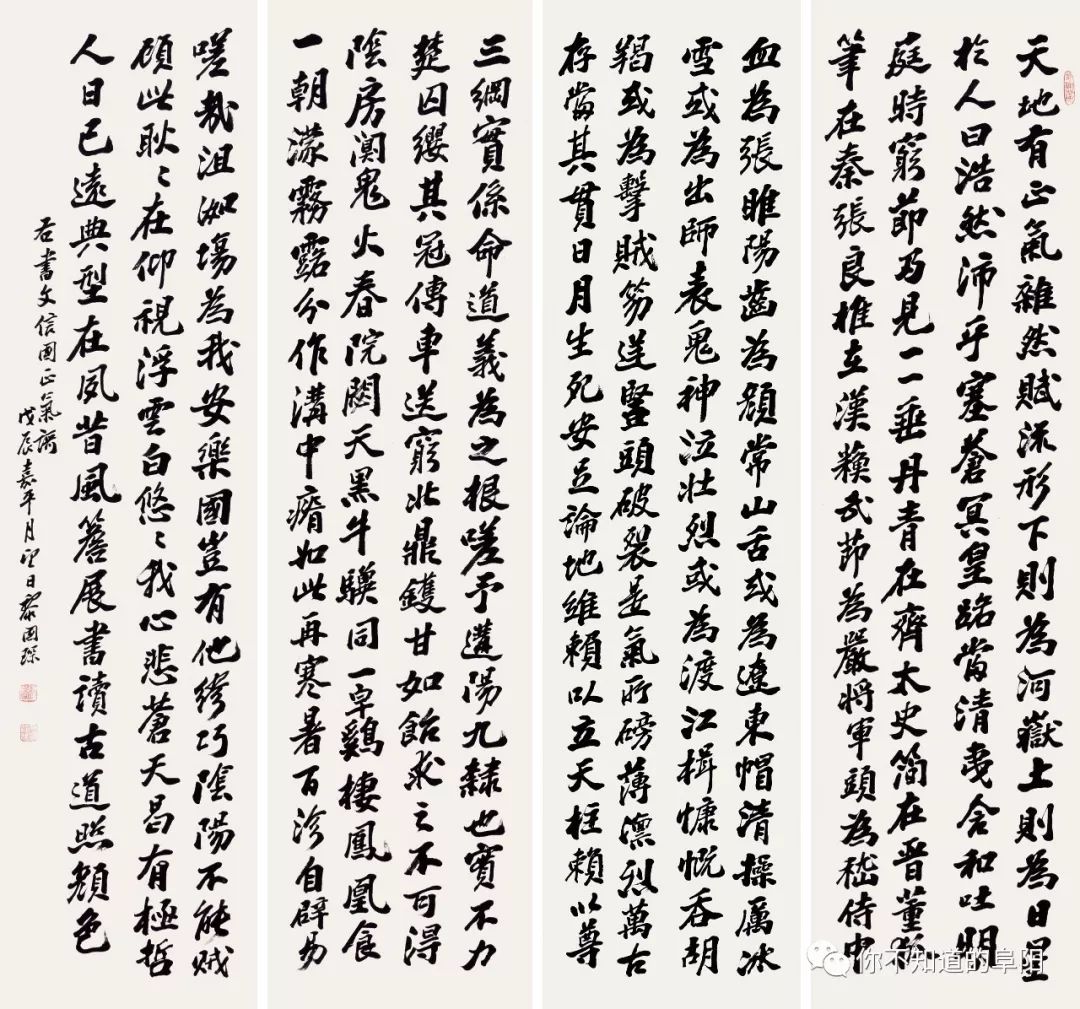 天地有正氣雜然賦流形下則為河嶽上則為日星
於人曰浩然沛乎塞蒼冥皇路當清夷含和吐明
庭時窮節乃見一一垂丹青在齊太史簡在晉董狐
筆在秦張良椎在漢蘇武節為嚴將軍頭為嵇侍中
血為張睢陽齒為顏常山舌或為遼東帽清操厲冰
雪或為出師表鬼神泣壯烈或為渡江楫慷慨吞胡
羯或為擊賊笏逆豎頭破裂是氣所磅薄凜烈萬古
存當其貫日月生死安足論地維賴以立天柱賴以尊
三綱實係命道義為之根嗟予遘陽九隸也實不力
楚囚纓其冠傳車送窮北鼎鑊甘如飴求之不可得
陰房闃鬼火春院閟天黑牛驥同一皁鷄棲鳳凰食
一朝濛霧露分作溝中瘠如此再寒暑百沴自辟易
嗟哉沮洳場為我安樂國豈有他繆巧陰陽不能賊
顧此耿〻在仰視浮雲白悠〻我心悲蒼天曷有極哲
人日已遠典型在夙昔風簷展書讀古道照顏色
右書文信國正氣謌
戊辰嘉平月望日黎國琛
你不知道的阜阳